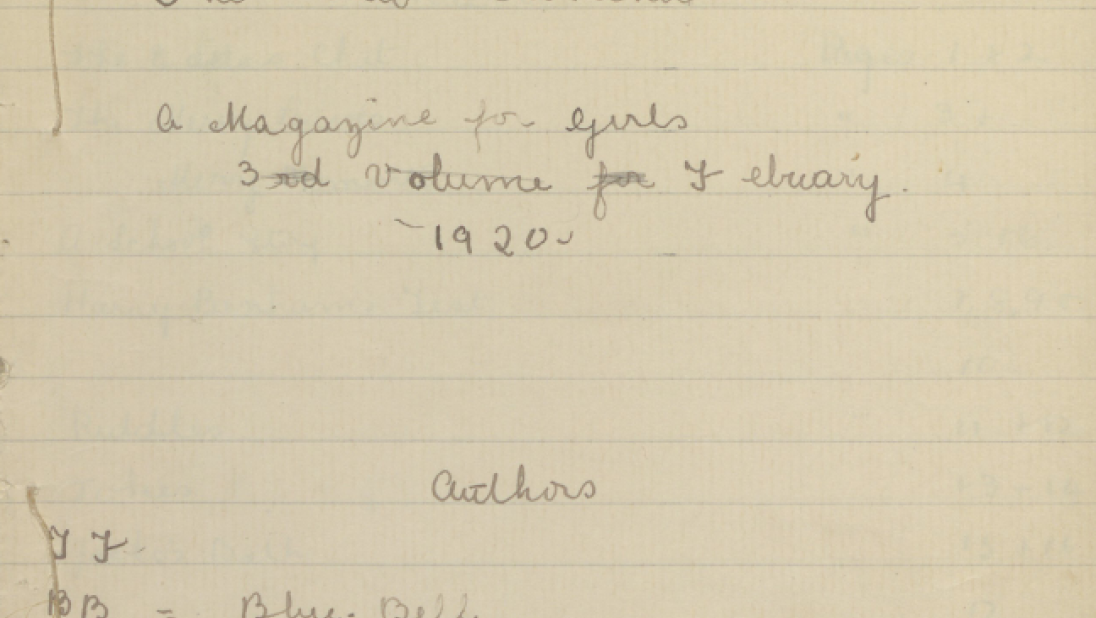 a Magazine for Girls
3rd Volume for Febuary.
1920
Authors
F F
BB = Blue. Bell